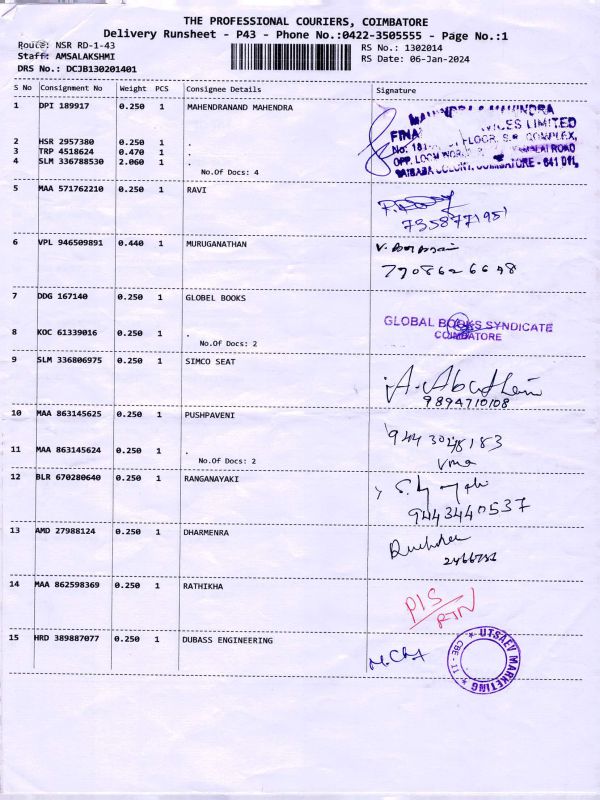 THE PROFESSIONAL COURIERS, COIMBATORE
Delivery Runsheet - P43 - Phone No.:0422-3505555 - Page No.:1
Route: NSR RD-1-43
RS No.: 1302014
Staff: AMSALAKSHMI
RS Date: 06-Jan-2024
DRS No.: DCJB130201401
S No Consignment No Weight PCS Consignee Details Signature
1 DPI 189917 0.250 1 MAHENDRANAND MAHENDRA
MAHINDRA & MAHINDRA
LIMITED
FLOOR, S.R. COMPLEX,
2 HSR 2957380 0.250 1 .
3 TRP 4518624 0.470 1 .
4 SLM 336788530 2.060 1 .
ROAD
COIMBATORE - 641 011.
No.Of Docs: 4
5 MAA 571762210 0.250 1 RAVI
7358771951
6 VPL 946509891 0.440 1 MURUGANATHAN
7 DDG 167140 0.250 1 GLOBEL BOOKS
GLOBAL BOOKS SYNDICATE
COIMBATORE
8 KOC 61339016 0.250 1 .
No.Of Docs: 2
9 SLM 336806975 0.250 1 SIMCO SEAT
9894710108
10 MAA 863145625 0.250 1 PUSHPAVENI
9443048183
Uma
11 MAA 863145624 0.250 1 .
No.Of Docs: 2
12 BLR 670280640 0.250 1 RANGANAYAKI
9443440537
13 AMD 27988124 0.250 1 DHARMENRA
14 MAA 862598369 0.250 1 RATHIKHA
P/S
RTN
15 HRD 389887077 0.250 1 DUBASS ENGINEERING
UTSAEV MARKETING
CBE - 11